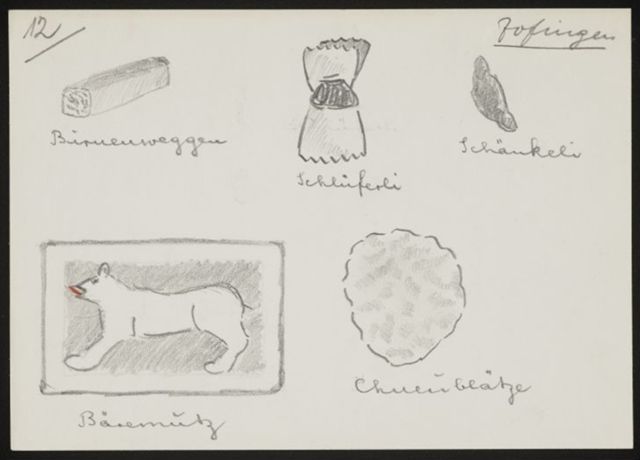 12
Zofingen
Birnenweggen
Schlüferli
Schänkeli
Bäremutz
Chneublätze